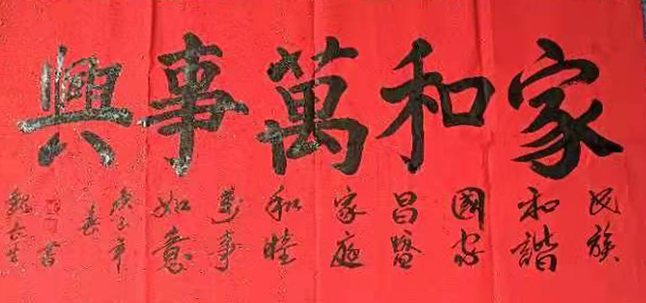 家和萬事興
民族
和諧
國家
昌盛
家庭
和睦
萬事
如意
庚子年
春
書